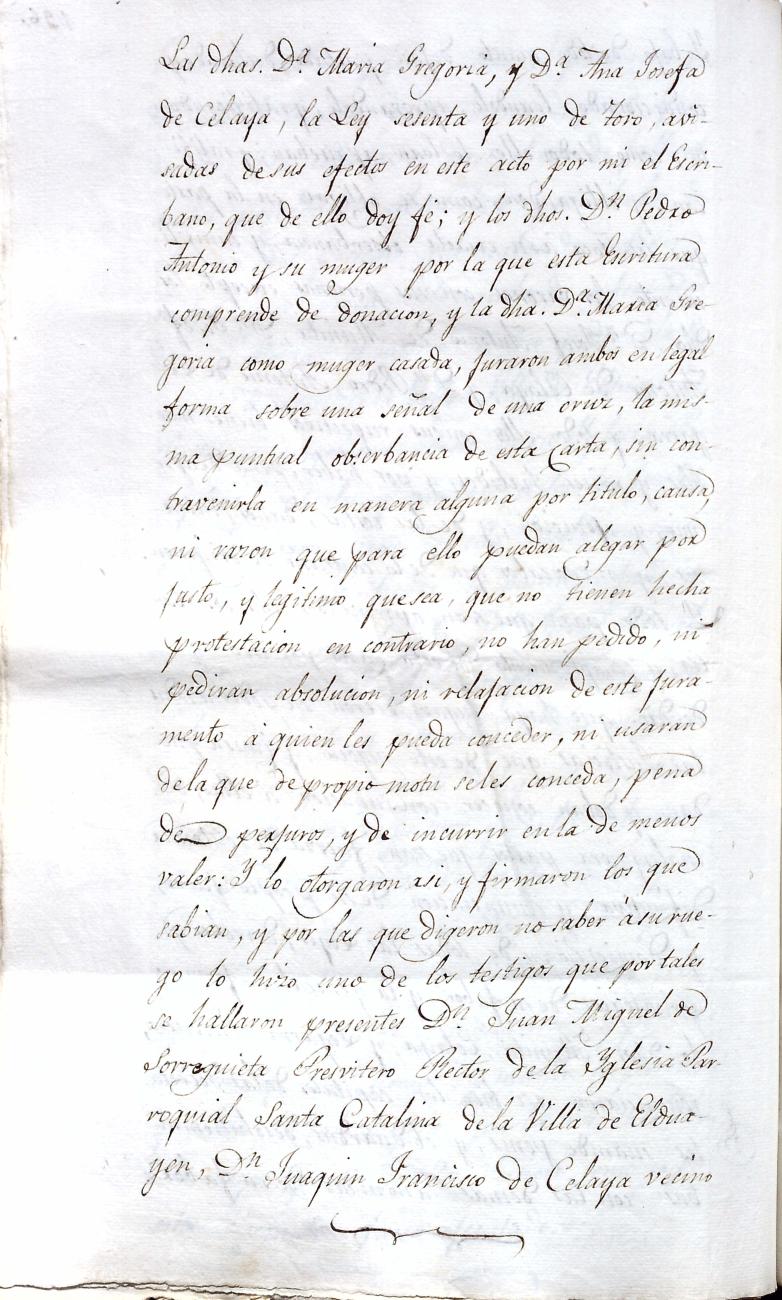 Las dhas. D.ª Maria Gregoria, y D.ª Ana Josefa
de Celaya, la Ley sesenta y uno de Toro, avi-
sadas de sus efectos en este acto por mi el Escri-
bano, que de ello doy fé; y los dhos. D.n Pedro
Antonio y su muger por la que esta Escritura
comprende de donacion, y la dha. D.ª Maria Gre-
goria como muger casada, juraron ambos en legal
forma sobre una señal de una cruz, la mis-
ma puntual obserbancia de esta Carta, sin con-
travenirla en manera alguna por titulo, causa,
ni razon que para ello puedan alegar por
justo, y legitimo que sea, que no tienen hecha
protestacion en contrario, no han pedido, ni
pediran absolucion, ni relajacion de este jura-
mento á quien les pueda conceder, ni usaran
de la que de propio motu se les conceda, pena
de perjuros, y de incurrir en la de menos
valer: Y lo otorgaron asi, y firmaron los que
sabian, y por las que digeron no saber á su rue-
go lo hizo uno de los testigos que por tales
se hallaron presentes D.n Juan Miguel de
Sorreguieta Presvitero Rector de la Yglesia Par-
roquial Santa Catalina de la Villa de Eldua-
yen, D.n Juaquin Francisco de Celaya vecino